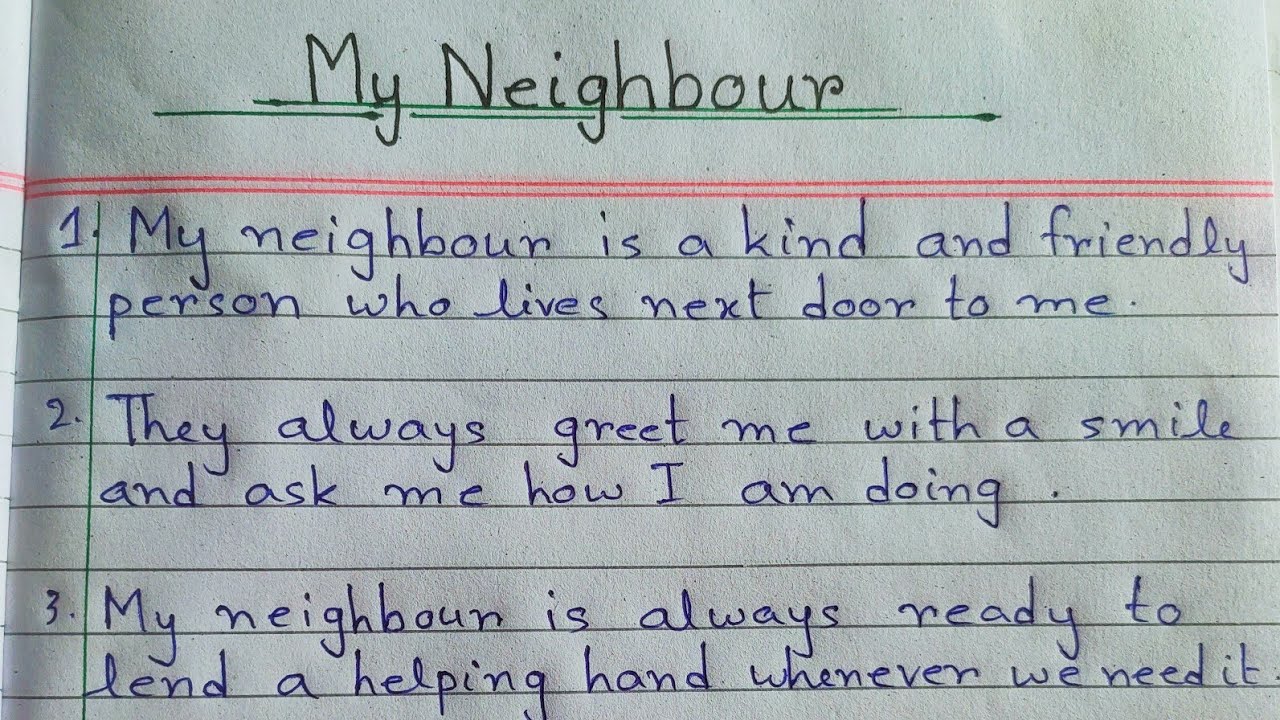 My Neighbour
1. My neighbour is a kind and friendly
person who lives next door to me.
2. They always greet me with a smile
and ask me how I am doing.
3. My neighbour is always ready to
lend a helping hand whenever we need it.